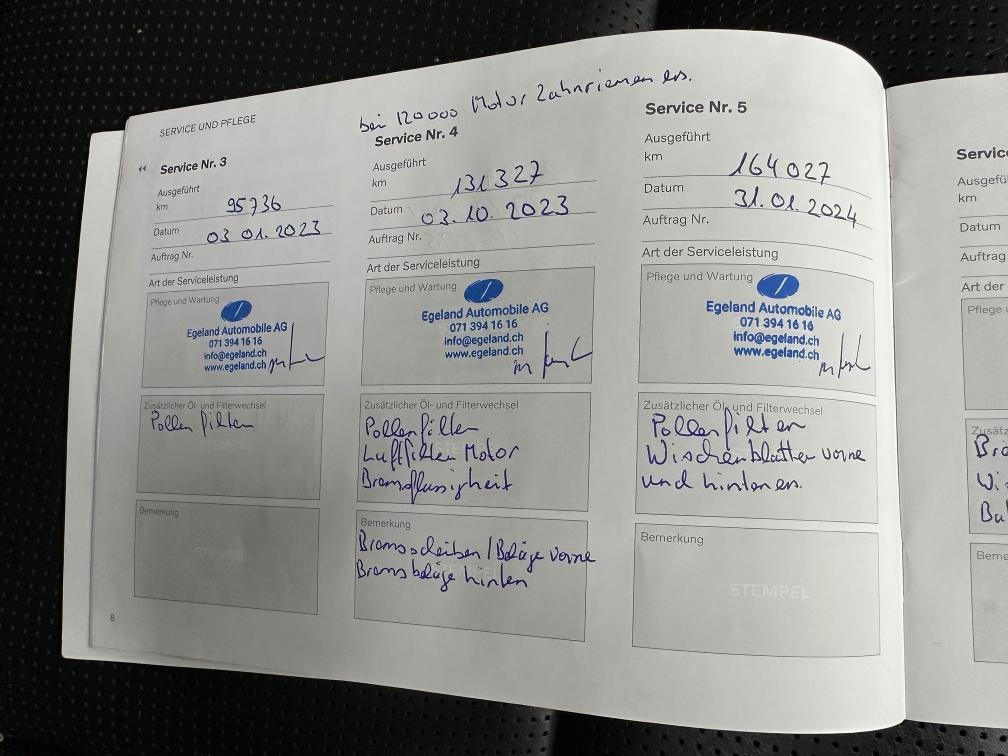 SERVICE UND PFLEGE
bei 120000 Motor Zahnriemen ers.
Service Nr. 3
Ausgeführt
km 95736
Datum 03 01. 2023
Auftrag Nr.
Art der Serviceleistung
Pflege und Wartung
Egeland Automobile AG
071 394 16 16
info@egeland.ch
www.egeland.ch
Zusätzlicher Öl- und Filterwechsel
Pollenfilter
Bemerkung
STEMPEL
8
Service Nr. 4
Ausgeführt
km 131327
Datum 03. 10. 2023
Auftrag Nr.
Art der Serviceleistung
Pflege und Wartung
Egeland Automobile AG
071 394 16 16
info@egeland.ch
www.egeland.ch
Zusätzlicher Öl- und Filterwechsel
Pollenfilter
Luftfilter Motor
Bremsflussigkeit
Bemerkung
Bremsscheiben / Beläge vorne
Bremsbeläge hinten
Service Nr. 5
Ausgeführt
km 164027
Datum 31. 01. 2024
Auftrag Nr.
Art der Serviceleistung
Pflege und Wartung
Egeland Automobile AG
071 394 16 16
info@egeland.ch
www.egeland.ch
Zusätzlicher Öl- und Filterwechsel
Pollenfilter
Wischerblätter vorne
und hinten ers.
Bemerkung
STEMPEL
Servic
Ausgefü
km
Datum
Auftrag
Art der
Pflege
Zusätz
Bre
Wi
Ba
Beme